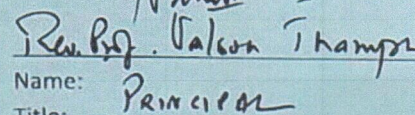 Rev. Prof. Valson Thampu
Name:
PRINCIPAL
Title: